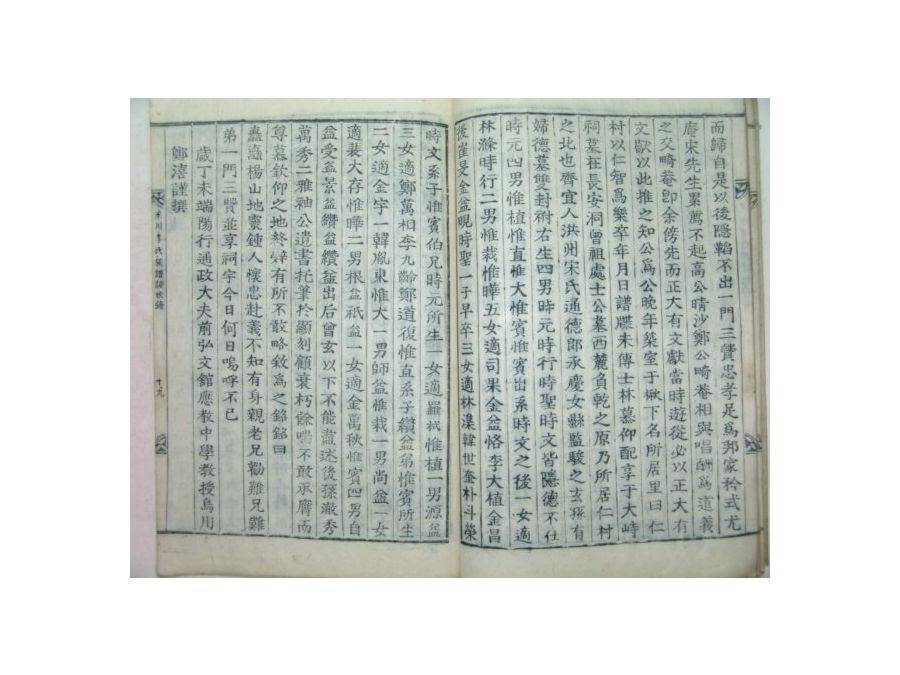 而歸自是以後隱鞱不出一門三賢忠孝足爲邦家矜式尤
庵宋先生累薦不起高公晴沙鄭公畸菴相與唱酬爲道義
之交畸菴卽余傍先而正大有文獻當時遊從必以正大有
文獻以此推之知公爲公晩年築室于楸下名所居里曰仁
村以仁智爲樂卒年月日譜牒未傳士林慕仰配享于大峙
祠墓在長安洞曾祖處士公墓西麓負乾之原乃所居仁村
之北也齊宜人洪州宋氏通德郎承慶女縣監駿之玄孫有
婦德墓雙封祔右生四男時元時行時聖時文皆隱德不仕
時元四男惟植惟直惟大惟賓惟賓出系時文之後一女適
林滌時行二男惟栽惟曄五女適司果金益恪李大植金昌
後崔旻金益晛時聖一子早卒三女適林漢韓世奎朴斗榮
時文系子惟賓伯兄時元所生一女適羅栻惟植一男源益
三女適鄭萬相李九齡鄭道復惟直系子纘益弟惟賓所生
二女適金字一韓胤東惟大一男師益惟栽一男尚益一女
適裴大存惟曄二男根益祇益一女適金萬秋惟賓四男自
益受益景益纘益纘益出后曾玄以下不能盡迷後孫澈秀
萬秀二雅袖公遺書托筆於顯刻顧衰朽餘喘不敢承膺而
尊慕欽仰之地終辭有所不敢略敘爲之銘銘曰
矗矗楊山地靈鍾人懷忠赴義不知有身親老兄勸難兄難
弟一門三賢並享祠宇今日何日嗚呼不已
歲丁未端陽行通政大夫前弘文館應教中學教授烏川
鄭憙謹撰
氏族譜
十九